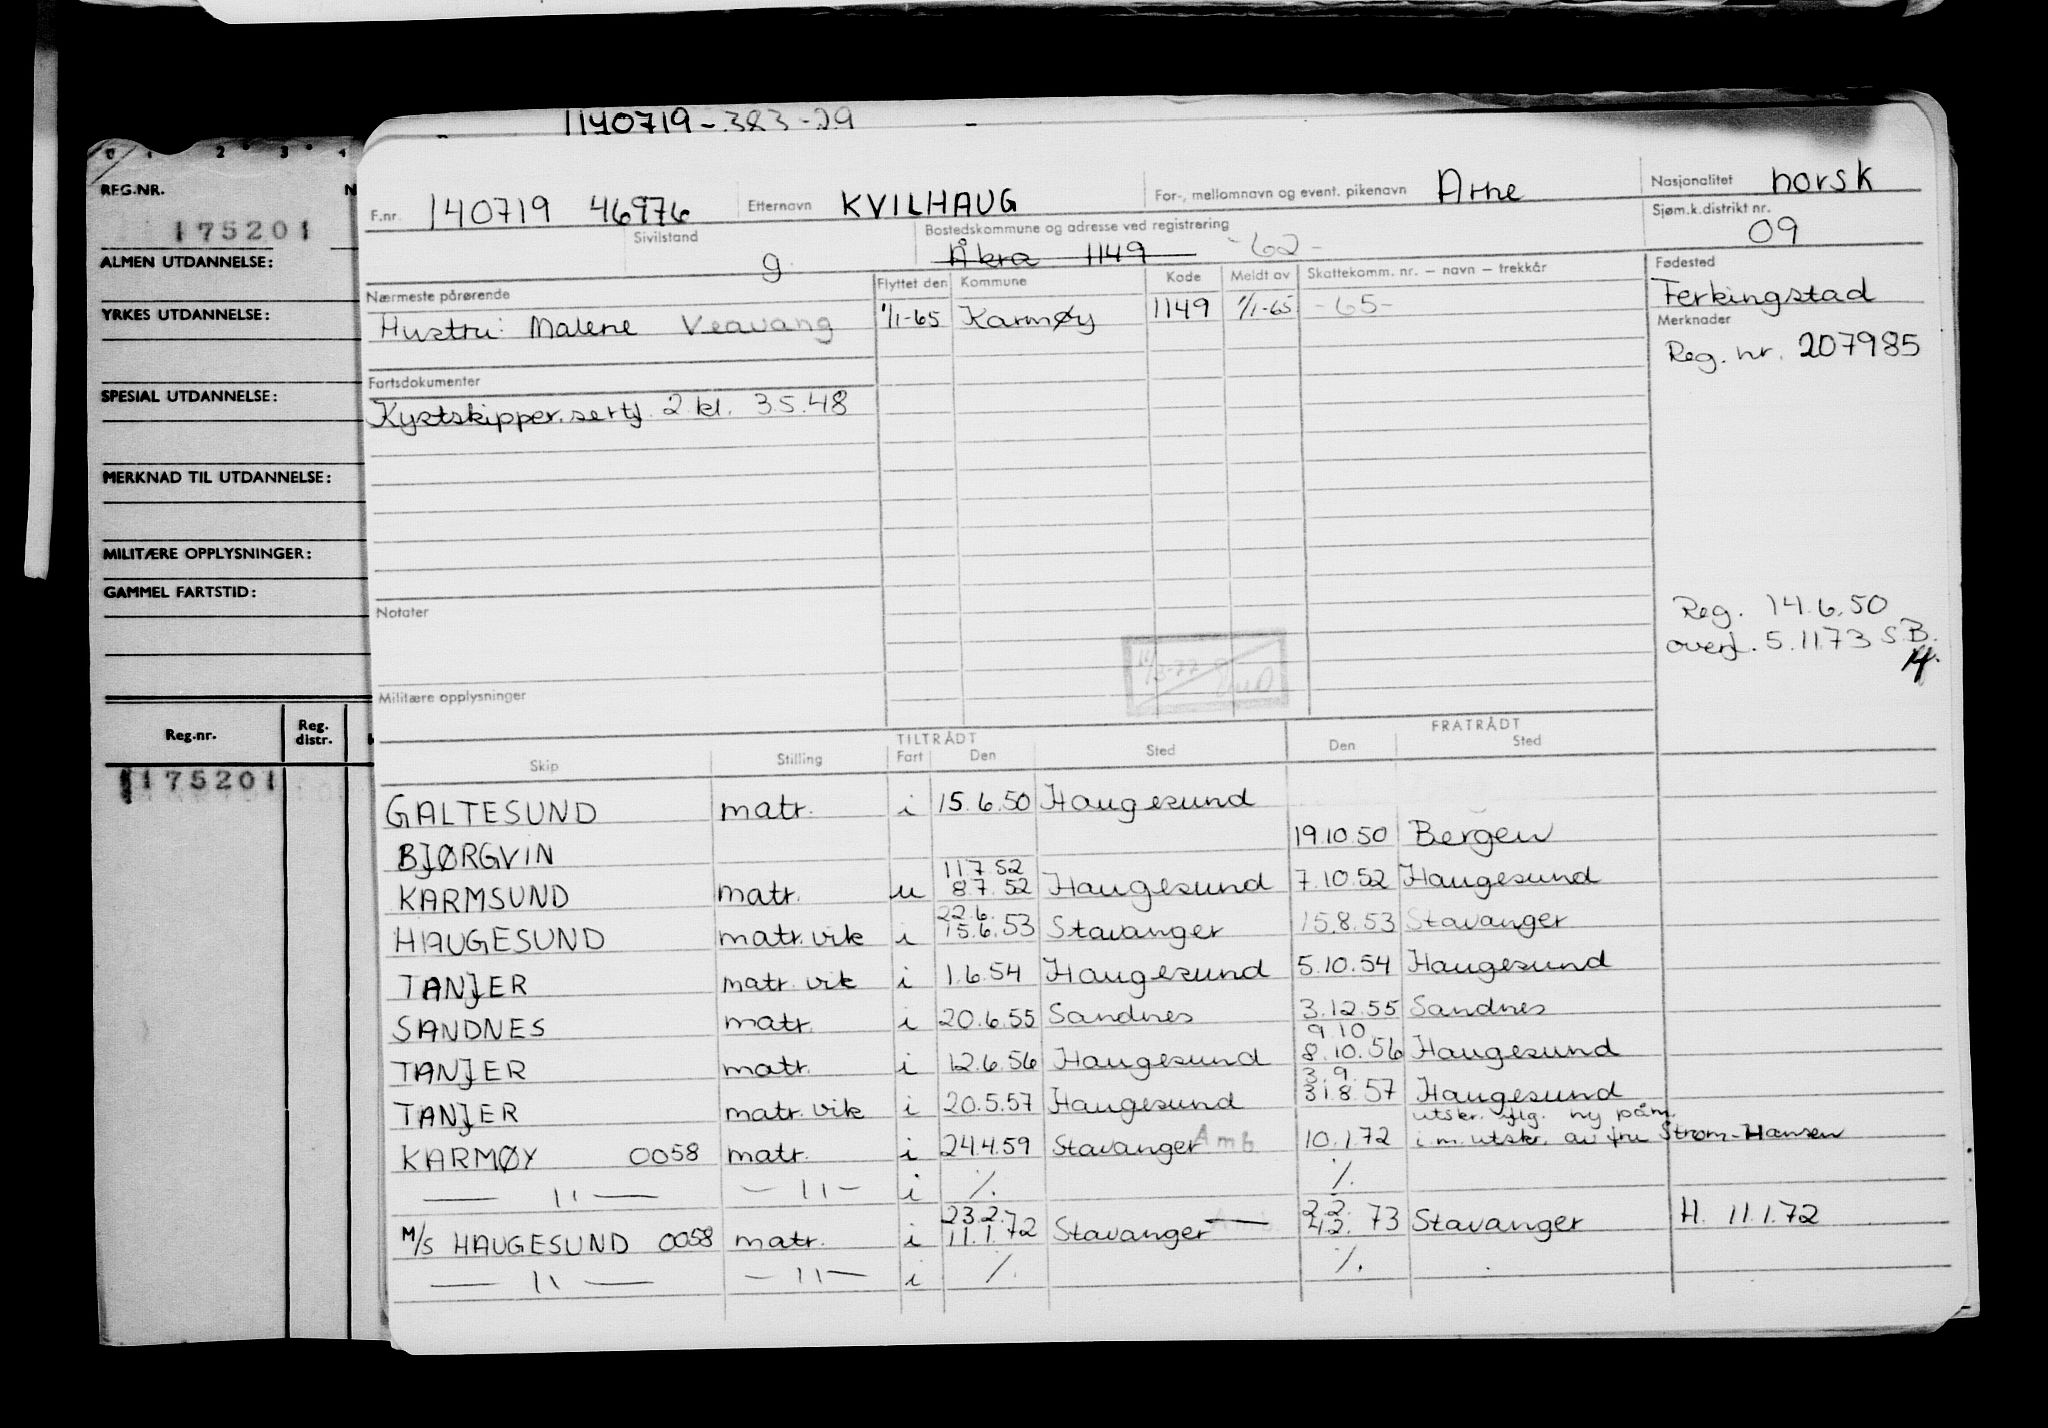 1140719-383-29
0 1 2 3 4
REG.NR. N
175201
ALMEN UTDANNELSE:
YRKES UTDANNELSE:
SPESIAL UTDANNELSE:
MERKNAD TIL UTDANNELSE:
MILITÆRE OPPLYSNINGER:
GAMMEL FARTSTID:
Reg.nr. Reg. distr.
175201
F.nr. 140719 46976 Etternavn KVILHAUG For-, mellomnavn og event. pikenavn Arne Nasjonalitet norsk
Sivilstand g Bostedskommune og adresse ved registrering Åkra 1149 -62- Sjøm.k.distrikt nr. 09
Nærmeste pårørende Flyttet den Kommune Kode Meldt av Skattekomm. nr. — navn — trekkår Fødested
Hustru: Malene Veavang 1/1-65 Karmøy 1149 1/1-65 -65- Ferkingstad
Merknader
Reg. nr. 207985
Fartsdokumenter
Kystskipper.sertf. 2 kl. 3.5.48
Notater
Reg. 14.6.50
overf. 5.11.73 S.B.
Militære opplysninger
TILTRÅDT FRATRÅDT
Skip Stilling Fart Den Sted Den Sted
GALTESUND matr. i 15.6.50 Haugesund
BJØRGVIN 19.10.50 Bergen
11752
KARMSUND matr. u 8.7.52 Haugesund 7.10.52 Haugesund
22.6.
HAUGESUND matr. vik i 15.6.53 Stavanger 15.8.53 Stavanger
TANJER matr. vik i 1.6.54 Haugesund 5.10.54 Haugesund
SANDNES matr. i 20.6.55 Sandnes 3.12.55 Sandnes
9.10
TANJER matr. i 12.6.56 Haugesund 8.10.56 Haugesund
3.9.
TANJER matr. vik i 20.5.57 Haugesund 31.8.57 Haugesund
utskr. flg. ny påm.
KARMØY 0058 matr. i 24.4.59 Stavanger Amb 10.1.72 i.m. utskr. av fru Strøm-Hansen
— 11 — — 11 — i ./. ./.
23.2. 2.2.
M/S HAUGESUND 0058 matr. i 11.1.72 Stavanger — 4.2.73 Stavanger H. 11.1.72
— 11 — — 11 — i ./. ./.